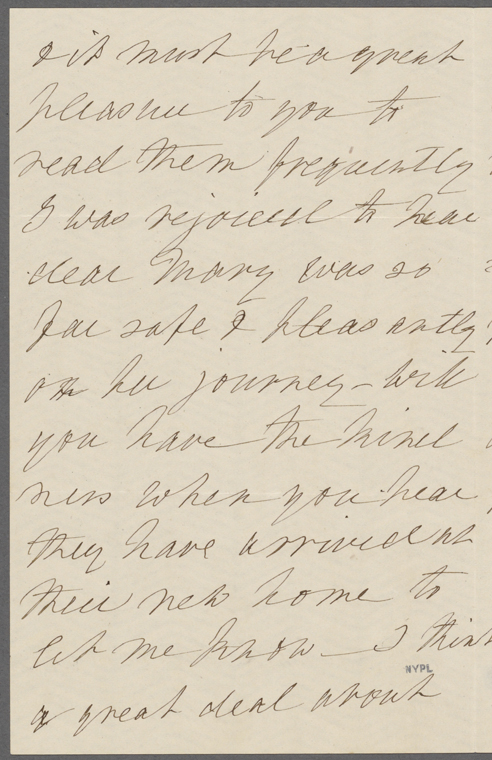 & it must be a great
pleasure to you to
read them frequently
I was rejoiced to hear
dear Mary was so
far safe & pleasantly
on her journey - Will
you have the kind
ness when you hear
they have arrived at
their new home to
let me know - I think
NYPL
a great deal about